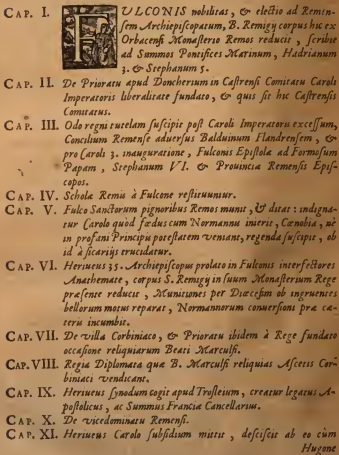 CAP. I. FULCONIS nobilitas, & electio ad Remen-
sem Archiepiscopatum, B. Remigy corpus hic ex
Orbacensi Monasterio Remos reducit, scribit
ad Summos Pontifices Marinum, Hadrianum
3. & Stephanum 5.
CAP. II. De Prioratu apud Doncherium in Castrensi Comitatu Caroli
Imperatoris liberalitate fundato, & quis sit hic Castrensis
Comitatus.
CAP. III. Odo regni tutelam suscipit post Caroli Imperatoris excessum,
Concilium Remense adversus Balduinum Flandrensem, &
pro Caroli 3. inauguratione, Fulconis Epistola ad Formosum
Papam, Stephanum VI. & Provincia Remensis Epis-
copos.
CAP. IV. Schola Remis à Fulcone restituuntur.
CAP. V. Fulco Sanctorum pignoribus Remos munit, & ditat: indigna-
tur Carolo quod fœdus cum Normannis inierit, Cœnobia, nè
in profani Principis potestatem veniant, regenda suscipit, ob
id à sicariis trucidatur.
CAP. VI. Heriueus 35. Archiepiscopus prolato in Fulconis interfectores
Anathemate, corpus S. Remigy in suum Monasterium Rege
præsente reducit, Munitiones per Diœcesim ob ingruentes
bellorum motus reparat, Normannorum conversioni præ ca-
teris incumbit.
CAP. VII. De villa Corbiniaco, & Prioratu ibidem à Rege fundato
occasione reliquiarum Beati Marculfi.
CAP. VIII. Regia Diplomata quæ B. Marculfi reliquias Ascetis Cor-
biniaci vendicant.
CAP. IX. Heriueus synodum cogit apud Trosleium, creatur legatus A-
postolicus, ac Summus Franciæ Cancellarius.
CAP. X. De vicedominatu Remensi.
CAP. XI. Heriueus Carolo subsidium mittit, desciscit ab eo cùm
Hugone